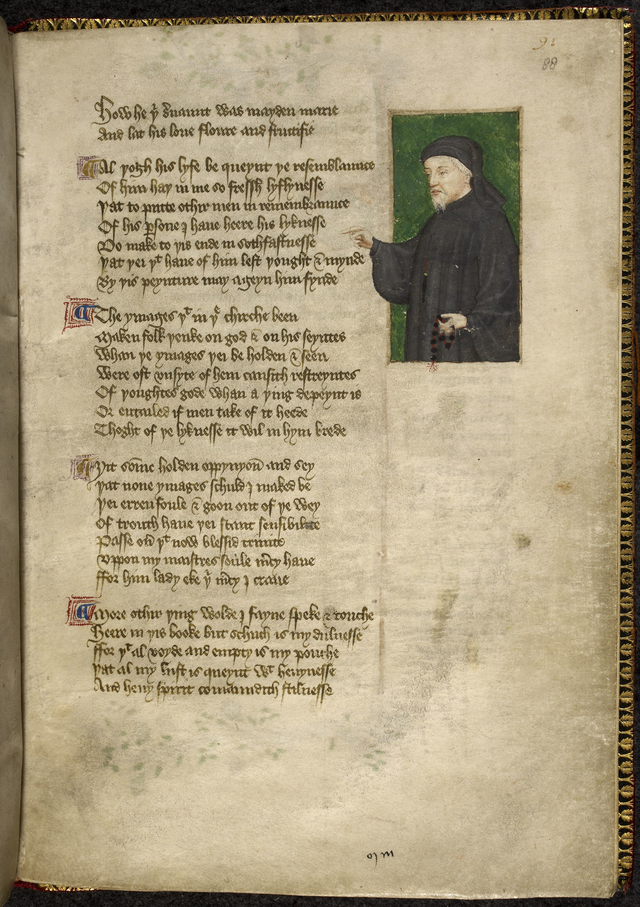 91
88
How he þͥ ẜuaunt was mayden marie
And lat his loue floure and fructifie
Al þogh his lyfe be queynt þe resemblaunce
Of him haþ in me so fressh lyflynesse
Þat to putte othir men in remembraunce
Of his ꝑsone I haue heere his lyknesse
Do make to þis ende in sothfastnesse
Þat þei þͭ haue of him left þought & mynde
By þis peynture may ageyn him fynde
The ymages þͭ in þͤ chirche been
Maken folk þenke on god & on his seyntes
Whan þe ymages þei be holden & seen
Were oft vnsyte of hem causith restreyntes
Of þoughtes gode whan a þing depeynt is
Or entailed if men take of it heede
Thoght of þe lyknesse it wil in hym brede
Yit some holden oppynyon and sey
Þat none ymages schuld I maked be
Þei erren foule & goon out of þe wey
Of trouth haue þei scant sensibilite
Passe ouer þͭ now blessid trinite
Vppon my maistres soule mercy haue
ffor him lady eke þͥ mercy I craue
More othir þing wolde I fayne speke & touche
Heere in þis booke but schuch is my dulnesse
ffor þͭ al voyde and empty is my pouche
Þat al my lust is queynt wͭ heuynesse
And heuy spirit comaundith stilnesse